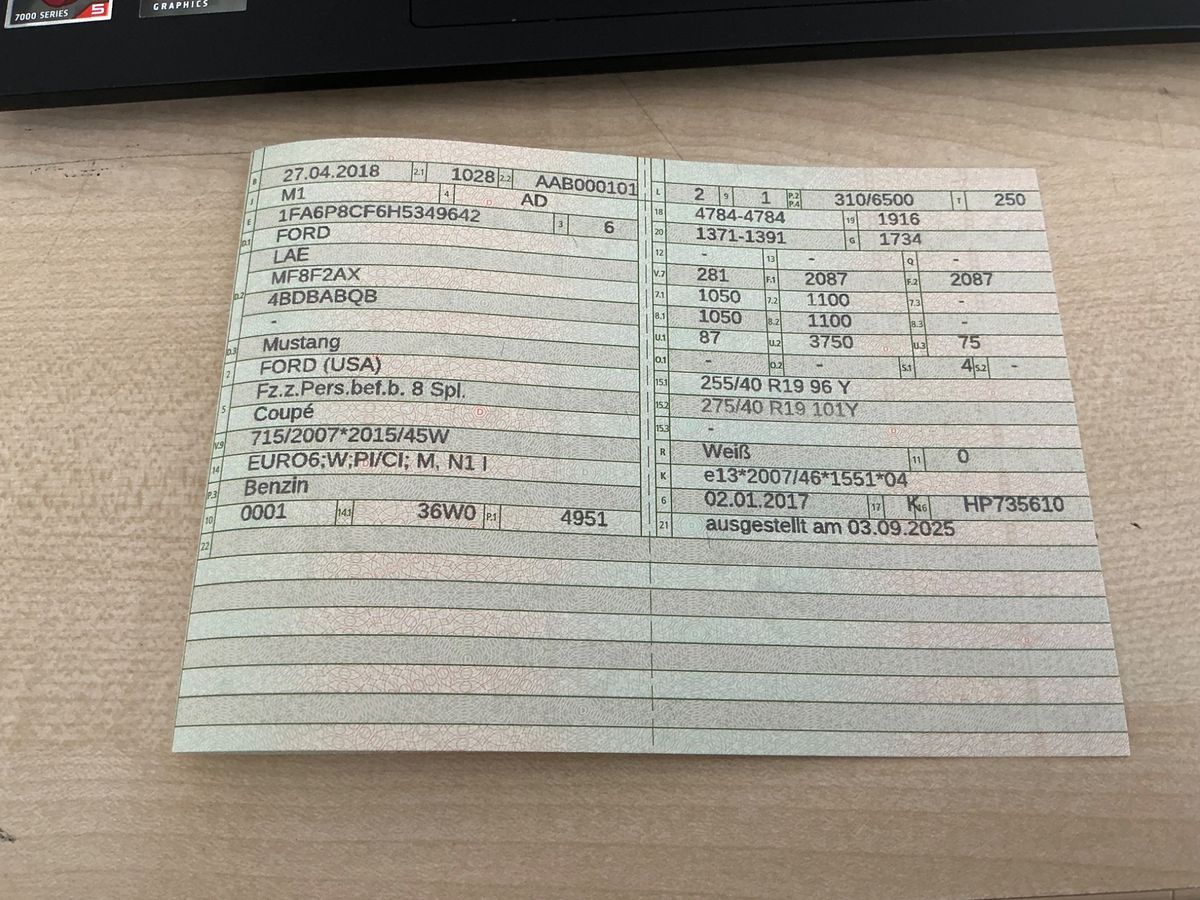 7000 SERIES 5
GRAPHICS
B 27.04.2018 2.1 1028 2.2 AAB000101
J M1 4 AD
E 1FA6P8CF6H5349642 3 6
D.1 FORD
LAE
D.2 MF8F2AX
4BDBABQB
-
D.3 Mustang
2 FORD (USA)
Fz.z.Pers.bef.b. 8 Spl.
5 Coupé
V.9 715/2007*2015/45W
14 EURO6;W;PI/CI; M, N1 I
P.3 Benzin
10 0001 14.1 36W0 P.1 4951
22
L 2 9 1 P.2 P.4 310/6500 T 250
18 4784-4784 19 1916
20 1371-1391 G 1734
12 - 13 - Q -
V.7 281 F.1 2087 F.2 2087
7.1 1050 7.2 1100 7.3 -
8.1 1050 8.2 1100 8.3 -
U.1 87 U.2 3750 U.3 75
O.1 - O.2 - S.1 4 S.2 -
15.1 255/40 R19 96 Y
15.2 275/40 R19 101Y
15.3 -
R Weiß 11 0
K e13*2007/46*1551*04
6 02.01.2017 17 K 16 HP735610
21 ausgestellt am 03.09.2025